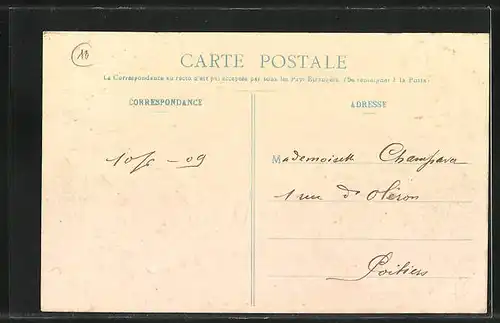 13
CARTE POSTALE
La Correspondance au recto n'est pas acceptée par tous les Pays Étrangers. (Se renseigner à la Poste)
CORRESPONDANCE
ADRESSE
10/5 - 09
Mademoiselle Champava
1 rue d'Oléron
Poitiers